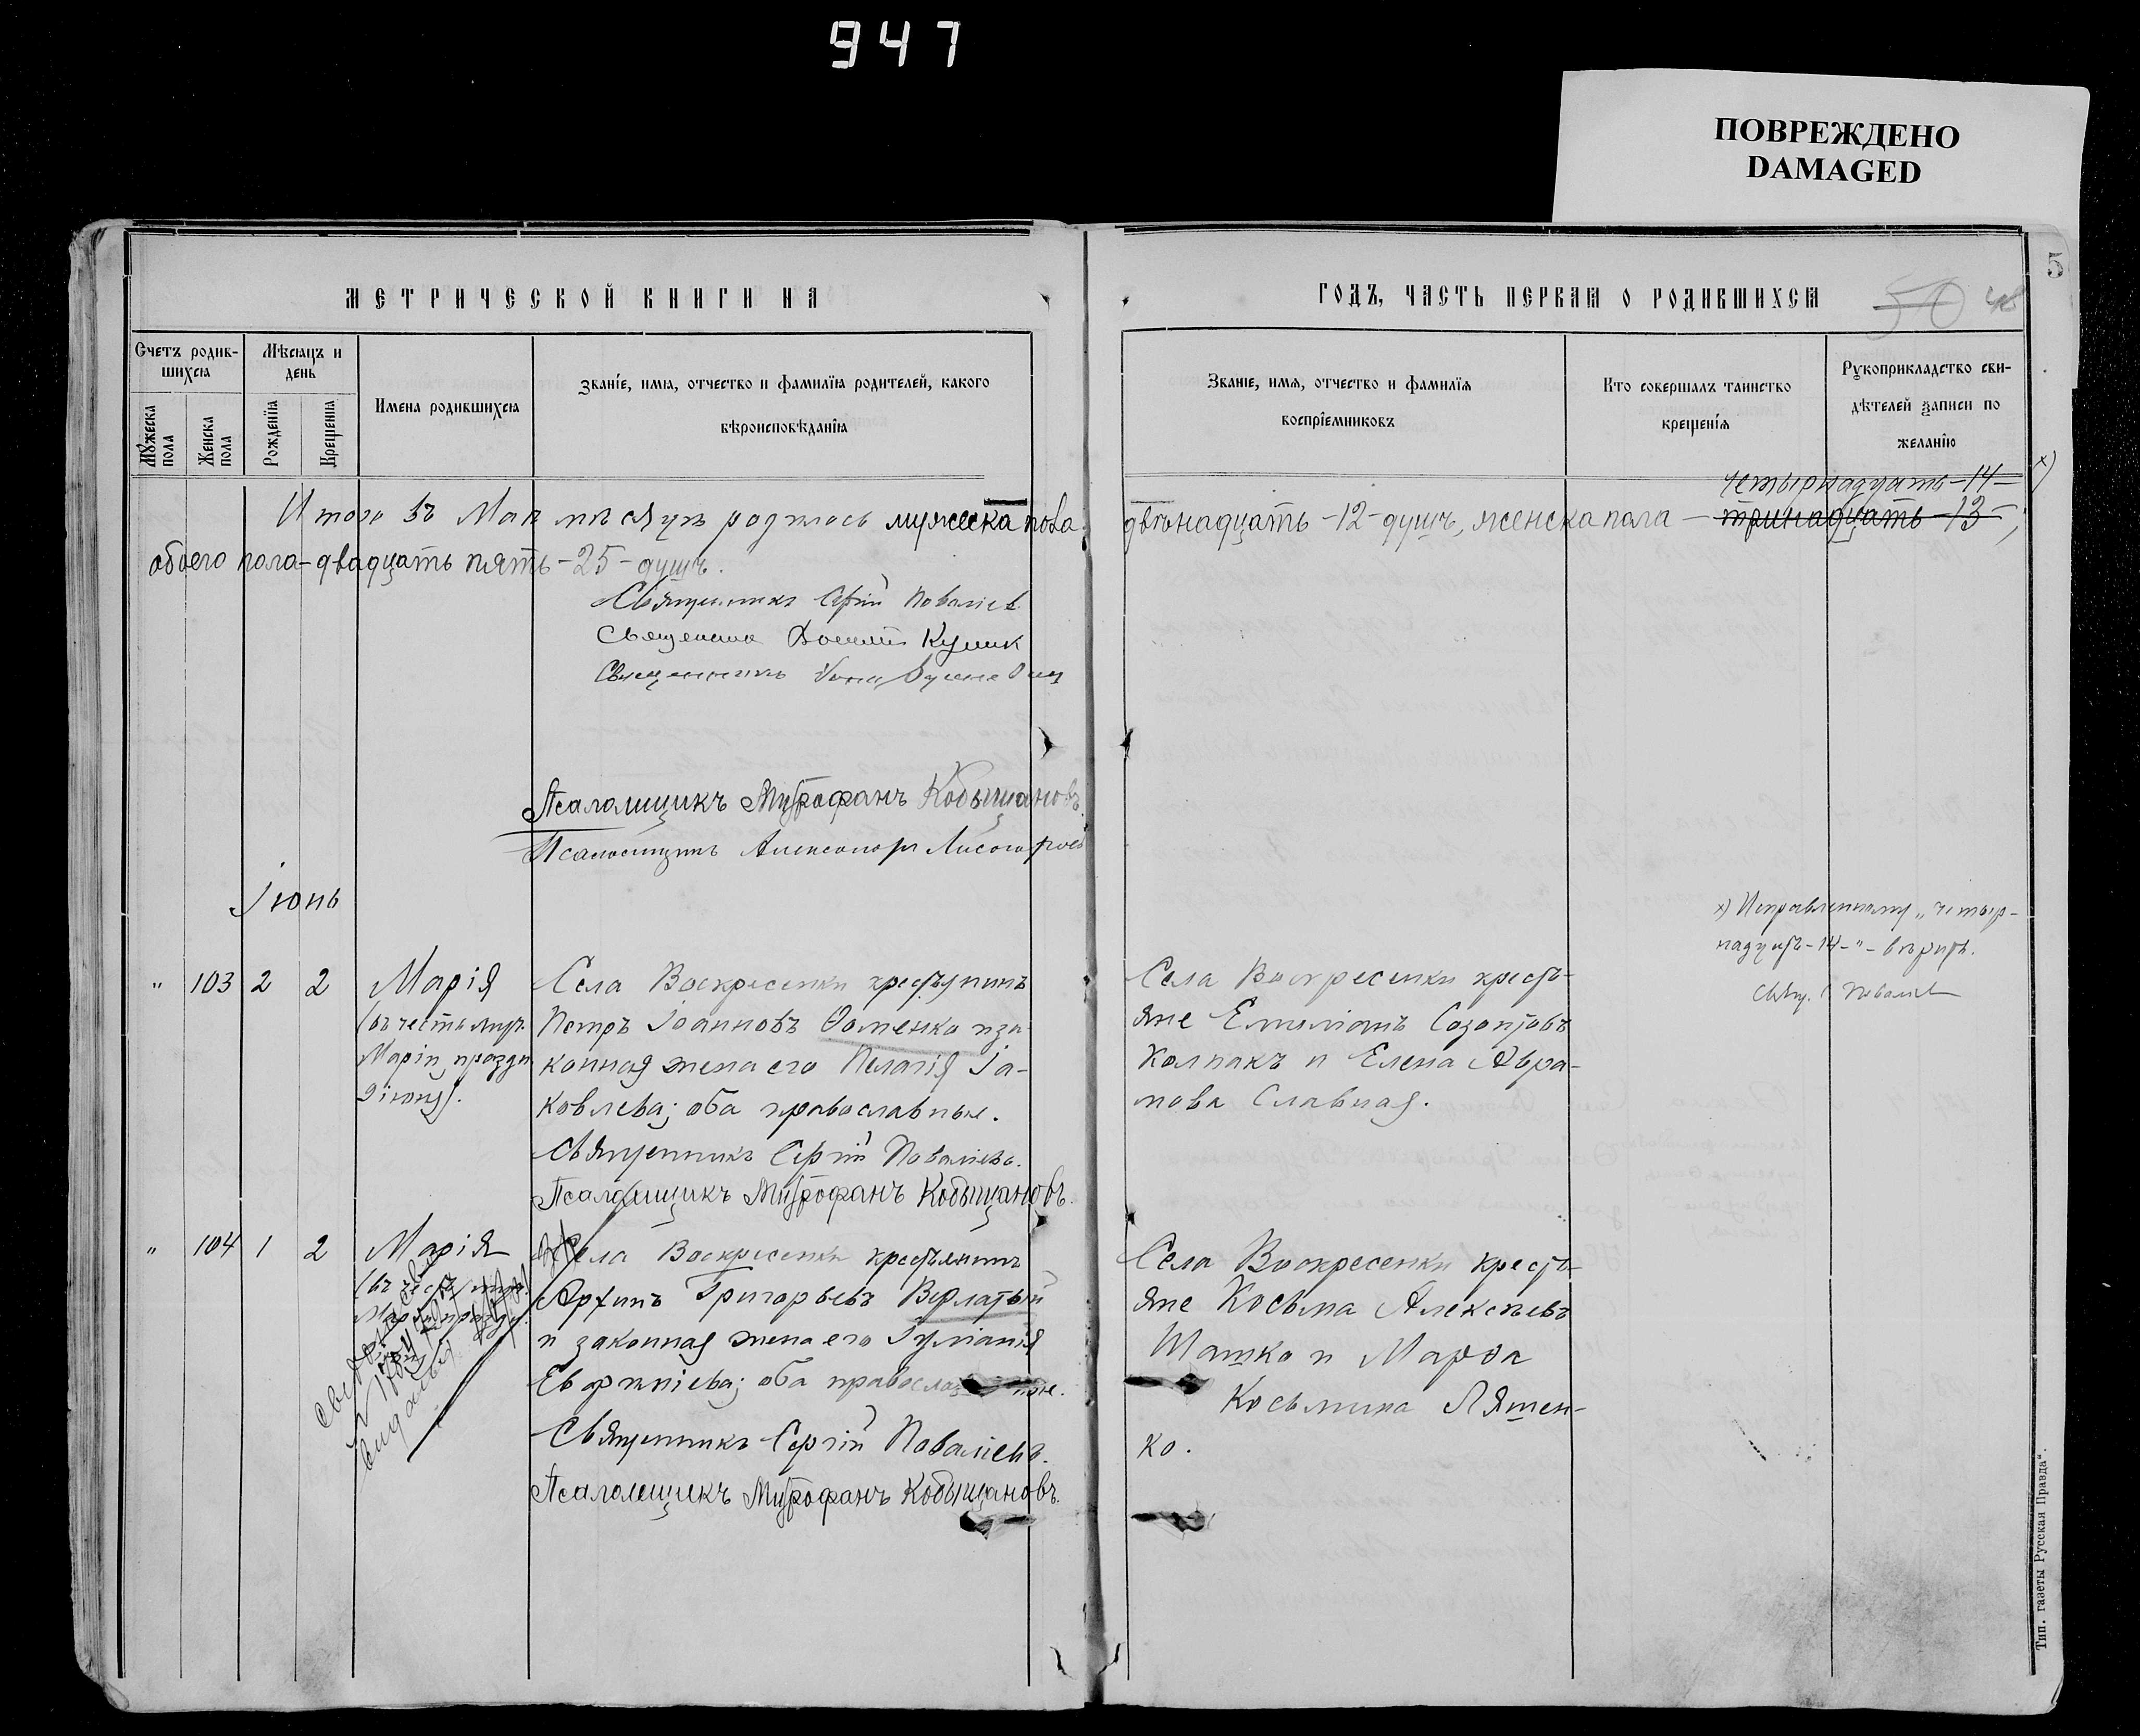 947
ПОВРЕЖДЕНО
DAMAGED
5
МЕТРИЧЕСКОЙ КНИГИ НА
ГОДЪ, ЧАСТЬ ПЕРВАЯ О РОДИВШИХСЯ
50
Счетъ родив-
шихся
Мѣсяцъ и
день
Имена родившихся
Званіе, имя, отчество и фамилія родителей, какого
вѣроисповѣданія
Мужеска
пола
Женска
пола
Рожденія
Крещенія
Званіе, имя, отчество и фамилія
воспріемниковъ
Кто совершалъ таинство
крещенія
Рукоприкладство сви-
дѣтелей записи по
желанію
четырнадцать-14- х)
Итого въ Маѣ мѣсяцѣ родилось мужеска пола двѣнадцать-12-душъ, женска пола - тринадцать-13-,
обоего пола-двадцать пять-25-душъ.
Священникъ Сергій Поваліев
Священник Василий Кулик
Священникъ
Псаломщикъ Митрофанъ Кобыщановъ.
Псаломщикъ Александръ Лисогоровъ
Іюнь
х) Исправленному „четыр-
надцать-14-"- вѣрить.
Свящ. С. Поваліев
" 103 2 2 Марія
(въ честь мүр.
Маріи, праздн.
9 іюня).
Села Воскресенки крестьянинъ
Петръ Іоанновъ Ѳоменко и за-
конная жена его Пелагія Іа-
ковлева; оба православные.
Священникъ Сергій Поваліевъ.
Псаломщикъ Митрофанъ Кобыщановъ.
Села Воскресенки кресть-
яне Емиліанъ Созонтовъ
Колпакъ и Елена Авра-
мова Славная.
" 104 1 2 Марія
(въ честь мүр.
Села Воскресенки крестьянинъ
Архипъ Григорьевъ Верлатый
и законная жена его Іуліанія
Евфиміева; оба православные.
Священникъ Сергій Поваліевъ.
Псаломщикъ Митрофанъ Кобыщановъ.
Села Воскресенки кресть-
яне Косьма Алексѣевъ
Шашко и Марѳа
Косьмина Ляшен-
ко.
Тип. газеты Русская Правда".